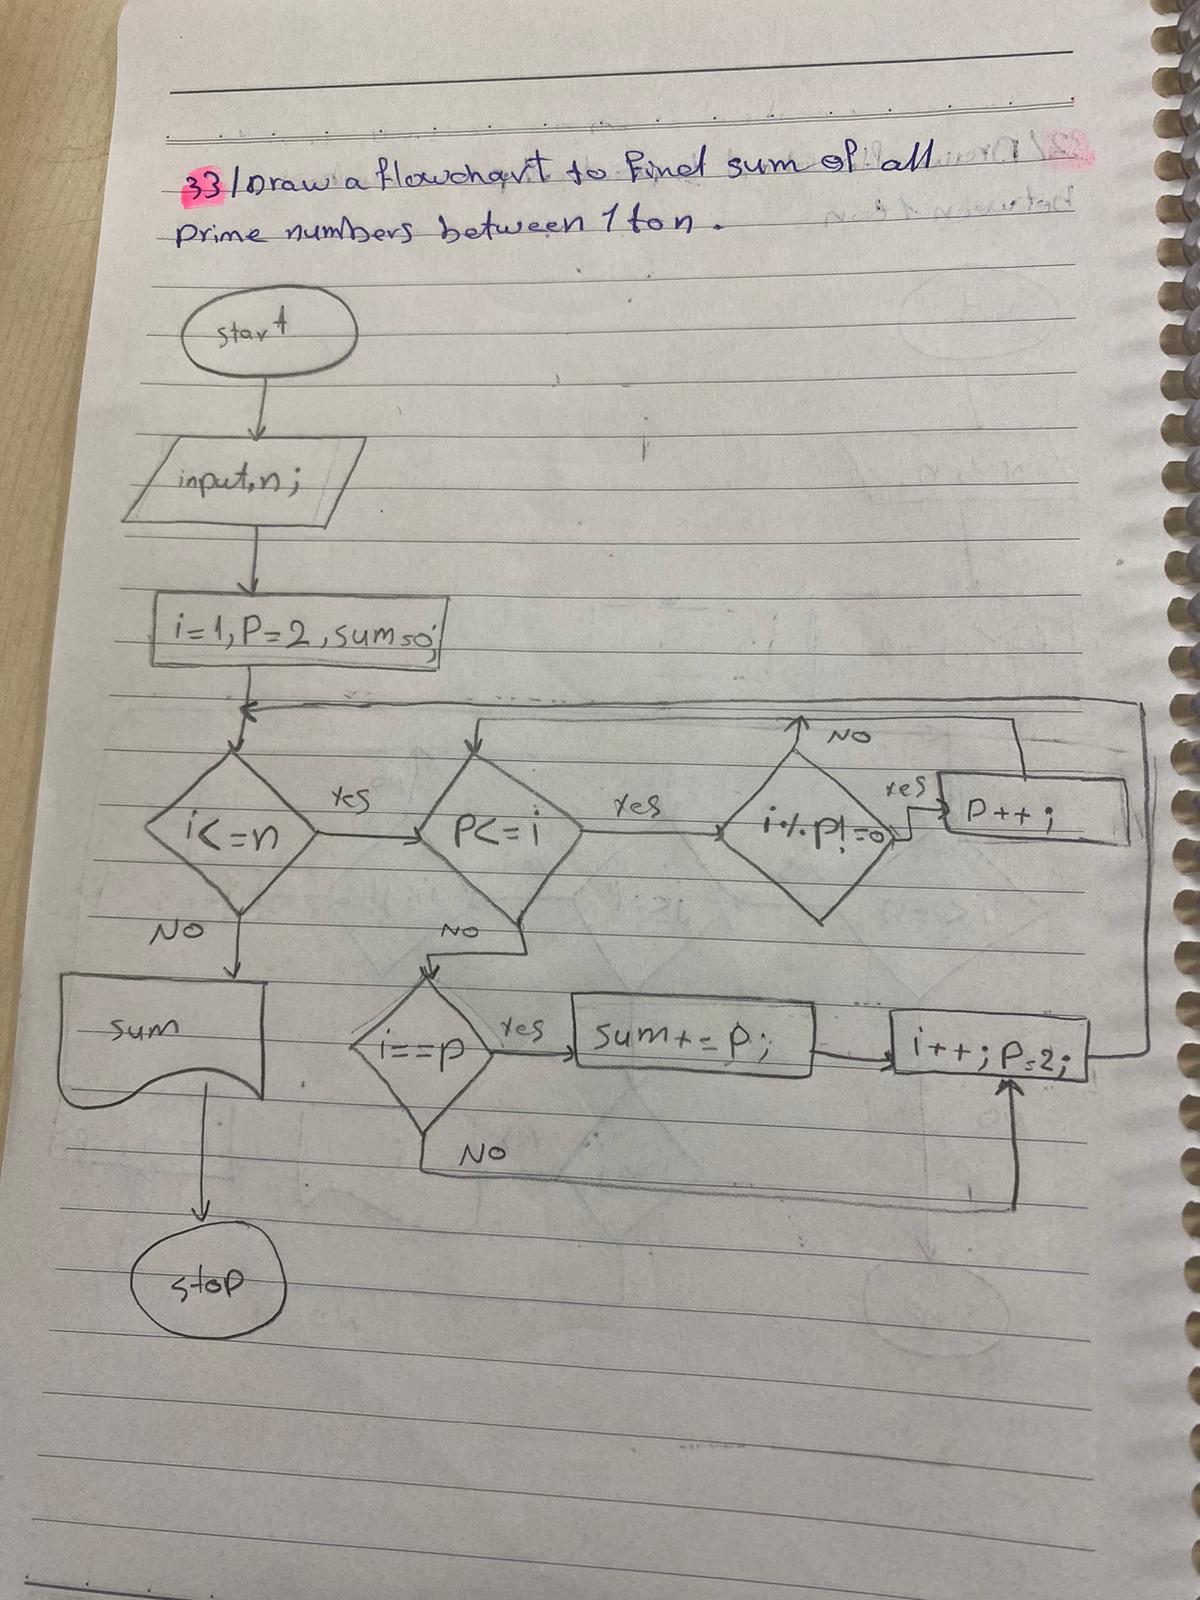 33/Draw a flowchart to find sum of all
prime numbers between 1 to n.
start
input,n;
i=1,P=2,sum=0;
i<=n
Yes
P<=i
Yes
i%P!=0
NO
Yes
P++;
NO
NO
sum
i==p
Yes
sum+=P;
i++;P=2;
NO
stop